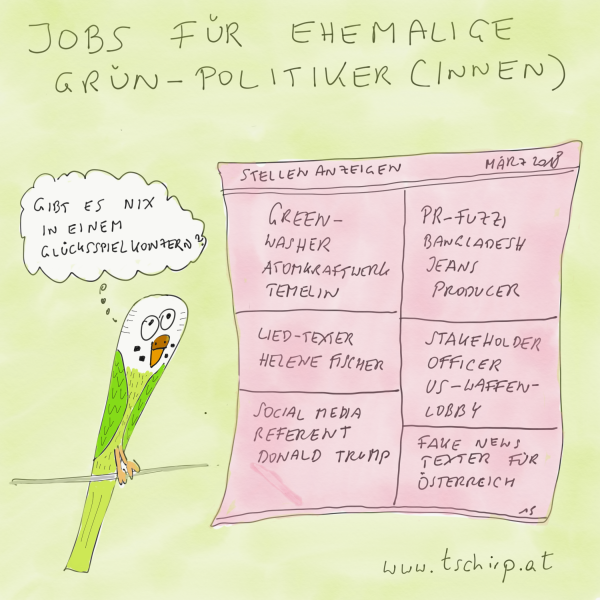 JOBS FÜR EHEMALIGE
GRÜN-POLITIKER (INNEN)
GIBT ES NIX
IN EINEM
GLÜCKSSPIELKONZERN?
STELLENANZEIGEN MÄRZ 2018
GREEN-
WASHER
ATOMKRAFTWERK
TEMELIN
PR-FUZZI
BANGLADESH
JEANS
PRODUCER
LIED-TEXTER
HELENE FISCHER
STAKEHOLDER
OFFICER
US-WAFFEN-
LOBBY
SOCIAL MEDIA
REFERENT
DONALD TRUMP
FAKE NEWS
TEXTER FÜR
ÖSTERREICH
www.tschirp.at